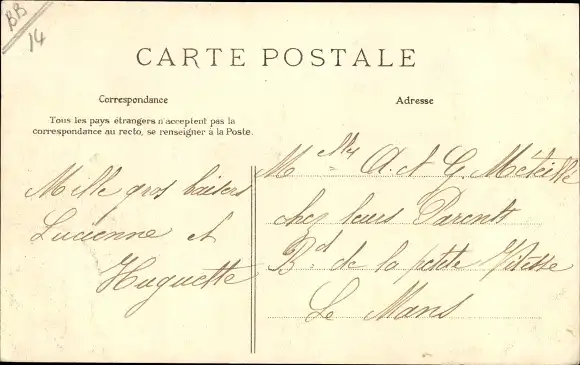 BB
14
CARTE POSTALE
Correspondance
Tous les pays étrangers n'acceptent pas la
correspondance au recto, se renseigner à la Poste.
Mille gros baisers
Lucienne et
Huguette
Adresse
Melles A. et G. Méteillé
chez leurs Parents
Bd de la petite Vitesse
Le Mans